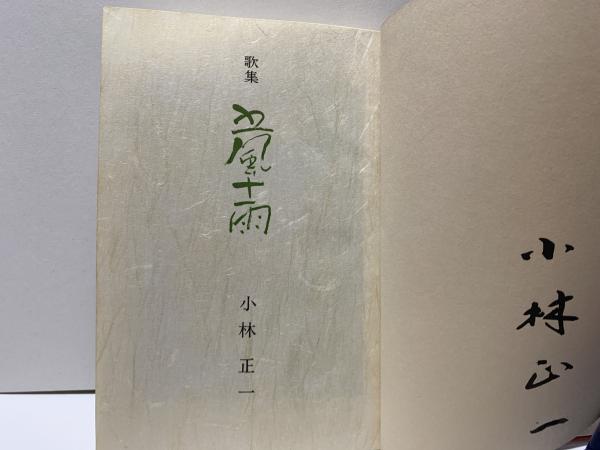 歌集
五風十雨
小林正一
小林正一